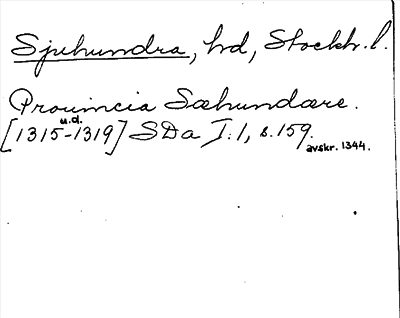 Sjuhundra, hd, Stockh. l.
Prouincia Sæhundare.
u.d.
[1315-1319] SDa I:1, s.159.
avskr. 1344.